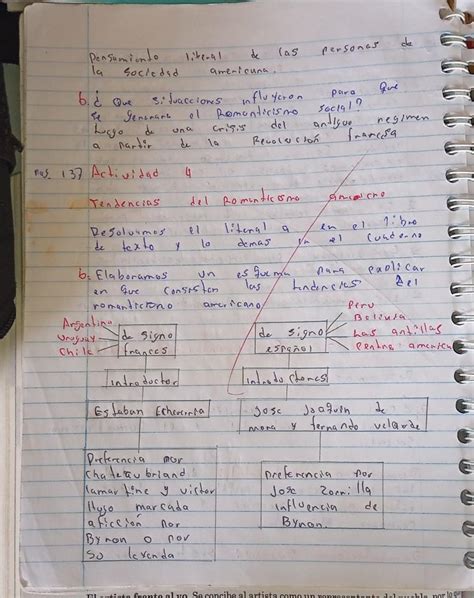 Pensamiento liberal de las personas de
la sociedad americana.
6. ¿Que situacciones influyeron para que
se generara el Romanticismo social?
Luego de una crisis del antigue regimen
a partir de la Revolución francesa
Pag. 137 Actividad 4
Tendencias del Romanticismo americno
Resolvamos el literal a en el libro
de texto y lo demas en el cuaderno
b. Elaboramos un esquema para explicar
en que consisten las tendencias del
romanticismo americano
Argentina
Uruguay
Chile
de signo
frances
de signo
español
Peru
Bolivia
Las antillas
Centro america
introductor
introductores
Esteban Echeverria
Jose Joaquin de
mora y fernando velarde
Preferencia por
chateaubriand
lamartine y victor
Hugo marcada
aficción por
Byron o por
su leyenda
preferencia por
Jose Zorrilla
influencia de
Byron.
El artista frente al yo. Se concibe al artista como un representante del pueblo, por lo